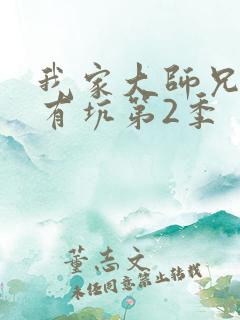 我家大师兄
有坑第2季
董志文
未经同意禁止转载